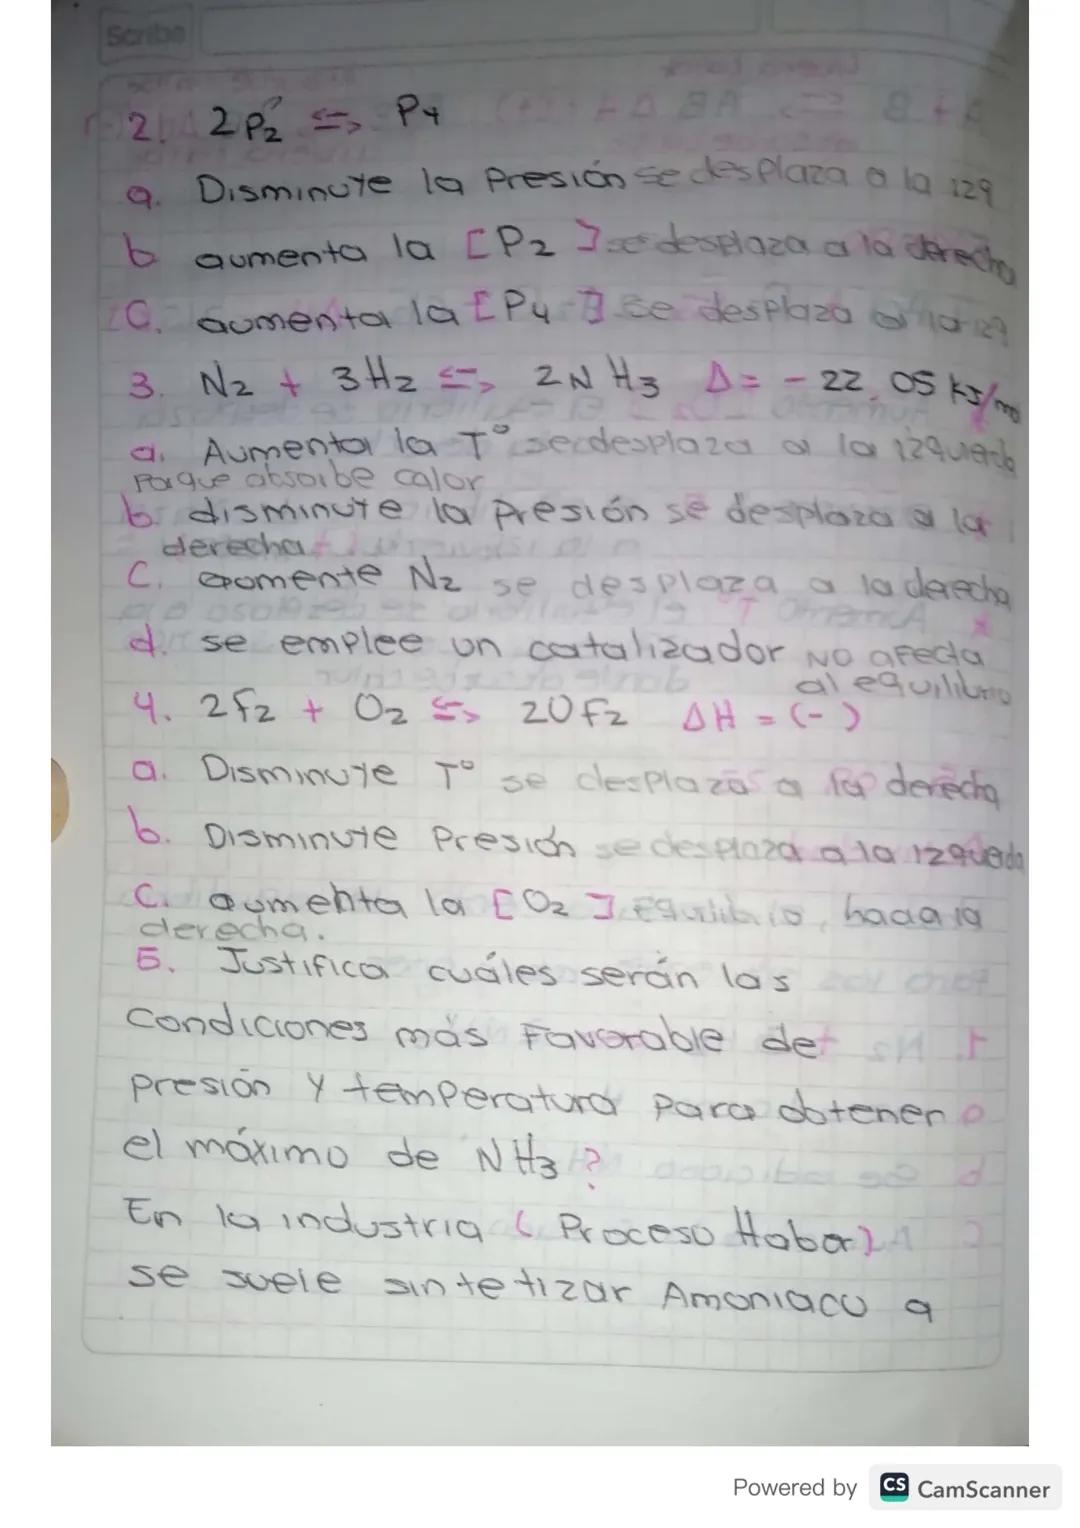 Scribe
2. 2P2 ⇆ P4
a. Disminuye la Presión se desplaza a la izq
b aumenta la [P2] se desplaza a la derecha
C. aumenta la [P4] se desplaza a la izq
3. N2 + 3H2 ⇆ 2NH3 Δ= -22,05 kJ/mo
a. Aumenta la T° se desplaza a la izquierda
Porque absorbe calor
b. disminuye la presión se desplaza a la
derecha
C. aomente N2 se desplaza a la derecha
d. se emplee un catalizador NO afecta
al equilibrio
4. 2F2 + O2 ⇆ 2OF2 ΔH = (-)
a. Disminuye T° se desplaza a la derecha
b. Disminuye Presión se desplaza a la izquieda
C. aumenta la [O2] Equilibrio, hacia la
derecha.
5. Justifica cuáles serán las
Condiciones más Favorable de
presión y temperatura para obtener
el máximo de NH3?
En la industria (Proceso Habar)
se suele sintetizar Amoniaco a
Powered by CS CamScanner